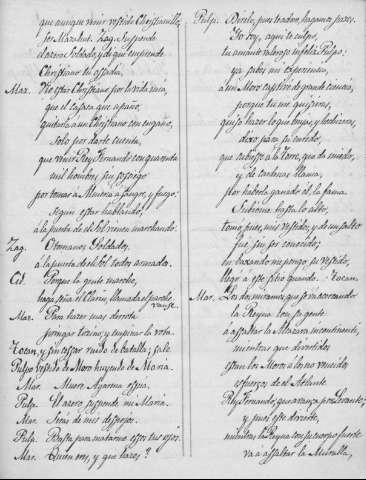 que aunque vivir vestido Christianillo,
ser Mazahut. Zag. Suspende
valeroso Soldado, y di que emprende
Christiano tu osadía.
Mar. No estás Christiano por la vida mía,
que el casaca que apaño,
quitéla a un Christiano con engaño,
Solo por darte cuenta,
que viene Rey Fernando con quarenta
mil hombres, su sosiego
por tomar a Almería a sangre, y fuego:
Seguir estar hablando,
a la punta de el Sol venir marchando.
Zag. Otomanos Soldados,
a la punta de el Sol todos armados.
Cel. Porque la gente marche,
haga seña el Clarin, llamada el parche.
vanse
Mar. Para hacer mas
poringar tozino, y empinar la vota.
Tocan, y sin cesar ruido de batalla; sale
Pulpo vestido de Moro huyendo de Maria.
Mar. Muere Agarena espia.
Pulp. Tu azero suspende mi Maria.
Mar. Serás de mis despojos.
Pulp. Basta para matarme esos tus ojos.
Mar. Quien eres, y que hazes?
Pulp. Direlo, pues teadoro, hagamos pazes.
Yo soy, aqui te culpo,
tu amante valeroso infeliz Pulpo:
ya sabes mi experiencia,
a un Moro captivé de grande ciencia,
porque tu me quisieras,
quise hazer lo que brujas, y hechizeras,
dixo, para su enredo,
que subiesse a la Torre, que da miedo,
y de cadenas llama,
por haberla ganado el, la fama.
Subíme hasta lo alto,
tome pues, mis vestidos, y de un salto
fue, sin ser conocido;
yo buscando me pongo su vestido,
llegó a este sitio quando. Tocan.
Mar. Los dos miramos que se va acercando
la Reyna con su gente
a asaltar la Alcazava incontinenti,
mientras que divertidos
estan los Moros a los no vencidos
esfuerzos de el Atlante
Rey Fernando, que avanza por Levante;
y pues este divierte,
mientras la Reyna con su cuerpo fuerte
va a assaltar la Muralla,